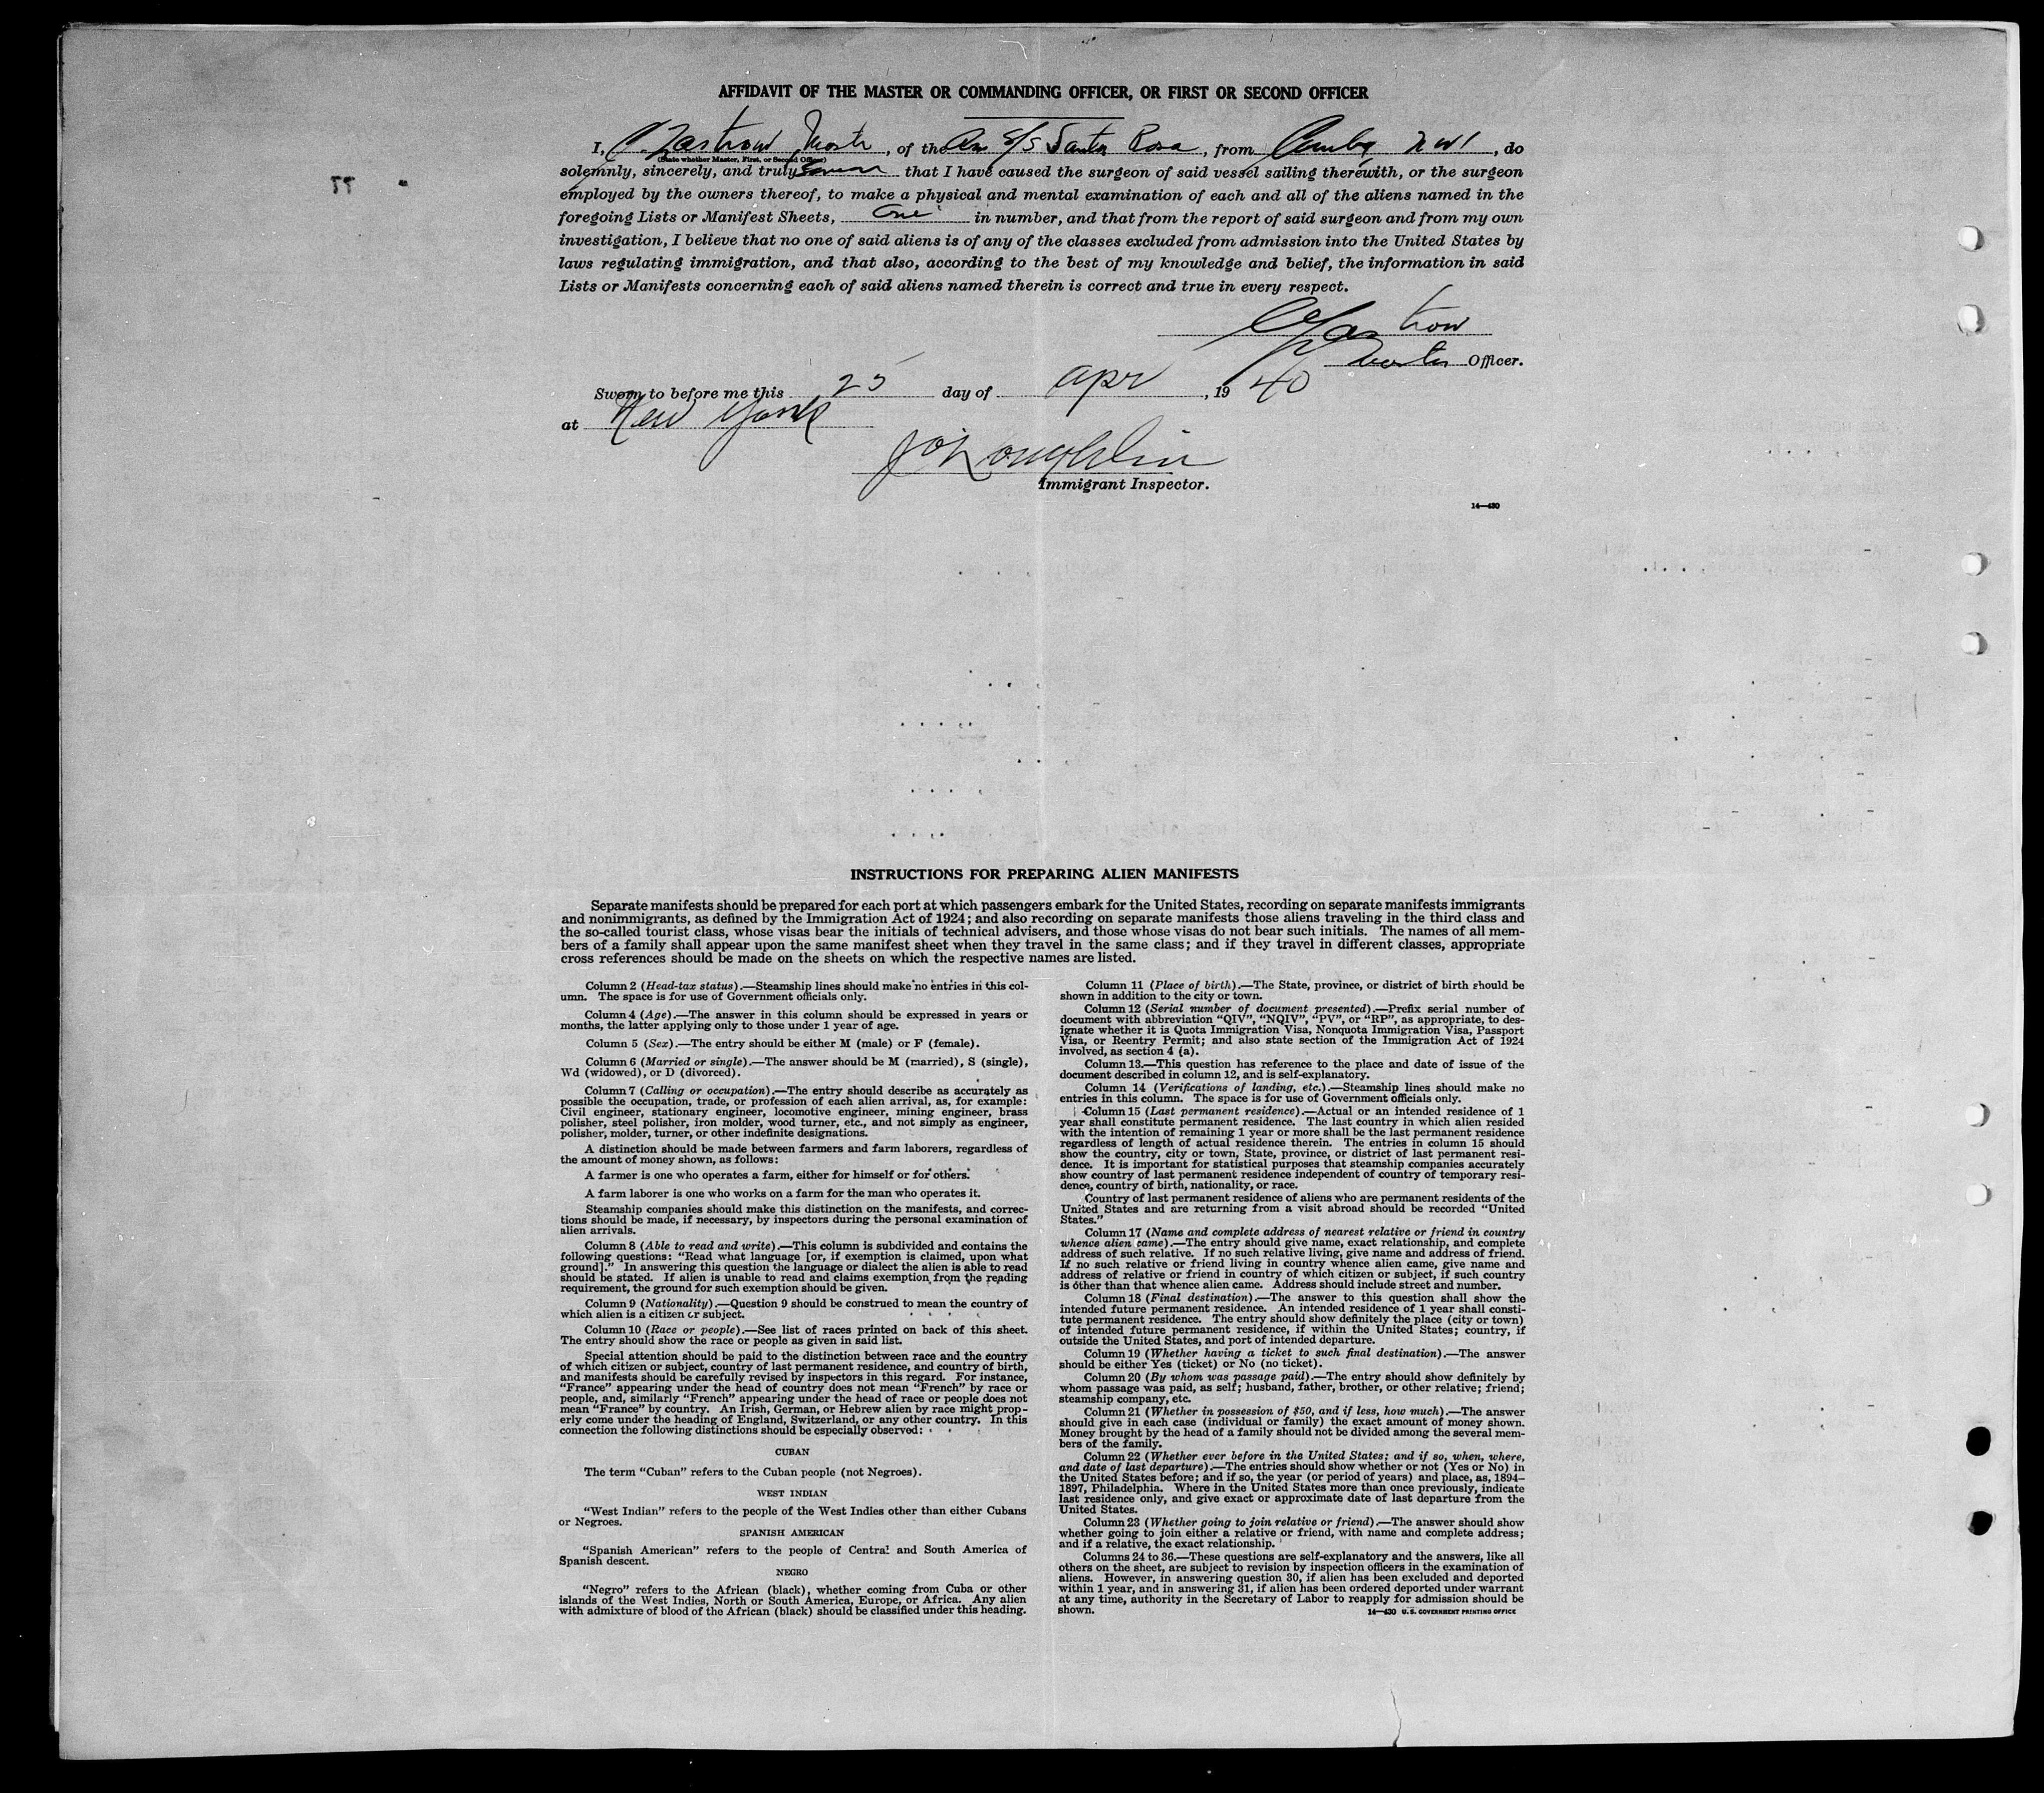 AFFIDAVIT OF THE MASTER OR COMMANDING OFFICER, OR FIRST OR SECOND OFFICER
I, C. Zastrow Master, of the Am S/S Santa Rosa, from N W I, do
(State whether Master, First, or Second Officer)
solemnly, sincerely, and truly swear that I have caused the surgeon of said vessel sailing therewith, or the surgeon
employed by the owners thereof, to make a physical and mental examination of each and all of the aliens named in the
foregoing Lists or Manifest Sheets, One in number, and that from the report of said surgeon and from my own
investigation, I believe that no one of said aliens is of any of the classes excluded from admission into the United States by
laws regulating immigration, and that also, according to the best of my knowledge and belief, the information in said
Lists or Manifests concerning each of said aliens named therein is correct and true in every respect.
C Zastrow
Master Officer.
Sworn to before me this 25 day of Apr, 1940
at New York
J O'Loughlin
Immigrant Inspector.
14—430
INSTRUCTIONS FOR PREPARING ALIEN MANIFESTS
Separate manifests should be prepared for each port at which passengers embark for the United States, recording on separate manifests immigrants
and nonimmigrants, as defined by the Immigration Act of 1924; and also recording on separate manifests those aliens traveling in the third class and
the so-called tourist class, whose visas bear the initials of technical advisers, and those whose visas do not bear such initials. The names of all mem-
bers of a family shall appear upon the same manifest sheet when they travel in the same class; and if they travel in different classes, appropriate
cross references should be made on the sheets on which the respective names are listed.
Column 2 (Head-tax status).—Steamship lines should make no entries in this col-
umn. The space is for use of Government officials only.
Column 4 (Age).—The answer in this column should be expressed in years or
months, the latter applying only to those under 1 year of age.
Column 5 (Sex).—The entry should be either M (male) or F (female).
Column 6 (Married or single).—The answer should be M (married), S (single),
Wd (widowed), or D (divorced).
Column 7 (Calling or occupation).—The entry should describe as accurately as
possible the occupation, trade, or profession of each alien arrival, as, for example:
Civil engineer, stationary engineer, locomotive engineer, mining engineer, brass
polisher, steel polisher, iron molder, wood turner, etc., and not simply as engineer,
polisher, molder, turner, or other indefinite designations.
A distinction should be made between farmers and farm laborers, regardless of
the amount of money shown, as follows:
A farmer is one who operates a farm, either for himself or for others.
A farm laborer is one who works on a farm for the man who operates it.
Steamship companies should make this distinction on the manifests, and correc-
tions should be made, if necessary, by inspectors during the personal examination of
alien arrivals.
Column 8 (Able to read and write).—This column is subdivided and contains the
following questions: "Read what language [or, if exemption is claimed, upon what
ground]." In answering this question the language or dialect the alien is able to read
should be stated. If alien is unable to read and claims exemption from the reading
requirement, the ground for such exemption should be given.
Column 9 (Nationality).—Question 9 should be construed to mean the country of
which alien is a citizen or subject.
Column 10 (Race or people).—See list of races printed on back of this sheet.
The entry should show the race or people as given in said list.
Special attention should be paid to the distinction between race and the country
of which citizen or subject, country of last permanent residence, and country of birth,
and manifests should be carefully revised by inspectors in this regard. For instance,
"France" appearing under the head of country does not mean "French" by race or
people, and, similarly "French" appearing under the head of race or people does not
mean "France" by country. An Irish, German, or Hebrew alien by race might prop-
erly come under the heading of England, Switzerland, or any other country. In this
connection the following distinctions should be especially observed:
CUBAN
The term "Cuban" refers to the Cuban people (not Negroes).
WEST INDIAN
"West Indian" refers to the people of the West Indies other than either Cubans
or Negroes.
SPANISH AMERICAN
"Spanish American" refers to the people of Central and South America of
Spanish descent.
NEGRO
"Negro" refers to the African (black), whether coming from Cuba or other
islands of the West Indies, North or South America, Europe, or Africa. Any alien
with admixture of blood of the African (black) should be classified under this heading.
Column 11 (Place of birth).—The State, province, or district of birth should be
shown in addition to the city or town.
Column 12 (Serial number of document presented).—Prefix serial number of
document with abbreviation "QIV", "NQIV", "PV", or "RP", as appropriate, to des-
ignate whether it is Quota Immigration Visa, Nonquota Immigration Visa, Passport
Visa, or Reentry Permit; and also state section of the Immigration Act of 1924
involved, as section 4 (a).
Column 13.—This question has reference to the place and date of issue of the
document described in column 12, and is self-explanatory.
Column 14 (Verifications of landing, etc.).—Steamship lines should make no
entries in this column. The space is for use of Government officials only.
Column 15 (Last permanent residence).—Actual or an intended residence of 1
year shall constitute permanent residence. The last country in which alien resided
with the intention of remaining 1 year or more shall be the last permanent residence
regardless of length of actual residence therein. The entries in column 15 should
show the country, city or town, State, province, or district of last permanent resi-
dence. It is important for statistical purposes that steamship companies accurately
show country of last permanent residence independent of country of temporary resi-
dence, country of birth, nationality, or race.
Country of last permanent residence of aliens who are permanent residents of the
United States and are returning from a visit abroad should be recorded "United
States."
Column 17 (Name and complete address of nearest relative or friend in country
whence alien came).—The entry should give name, exact relationship, and complete
address of such relative. If no such relative living, give name and address of friend.
If no such relative or friend living in country whence alien came, give name and
address of relative or friend in country of which citizen or subject, if such country
is other than that whence alien came. Address should include street and number.
Column 18 (Final destination).—The answer to this question shall show the
intended future permanent residence. An intended residence of 1 year shall consti-
tute permanent residence. The entry should show definitely the place (city or town)
of intended future permanent residence, if within the United States; country, if
outside the United States, and port of intended departure.
Column 19 (Whether having a ticket to such final destination).—The answer
should be either Yes (ticket) or No (no ticket).
Column 20 (By whom was passage paid).—The entry should show definitely by
whom passage was paid, as self; husband, father, brother, or other relative; friend;
steamship company, etc.
Column 21 (Whether in possession of $50, and if less, how much).—The answer
should give in each case (individual or family) the exact amount of money shown.
Money brought by the head of a family should not be divided among the several mem-
bers of the family.
Column 22 (Whether ever before in the United States; and if so, when, where,
and date of last departure).—The entries should show whether or not (Yes or No) in
the United States before; and if so, the year (or period of years) and place, as, 1894–
1897, Philadelphia. Where in the United States more than once previously, indicate
last residence only, and give exact or approximate date of last departure from the
United States.
Column 23 (Whether going to join relative or friend).—The answer should show
whether going to join either a relative or friend, with name and complete address;
and if a relative, the exact relationship.
Columns 24 to 36.—These questions are self-explanatory and the answers, like all
others on the sheet, are subject to revision by inspection officers in the examination of
aliens. However, in answering question 30, if alien has been excluded and deported
within 1 year, and in answering 31, if alien has been ordered deported under warrant
at any time, authority in the Secretary of Labor to reapply for admission should be
shown.
14—430 U. S. GOVERNMENT PRINTING OFFICE